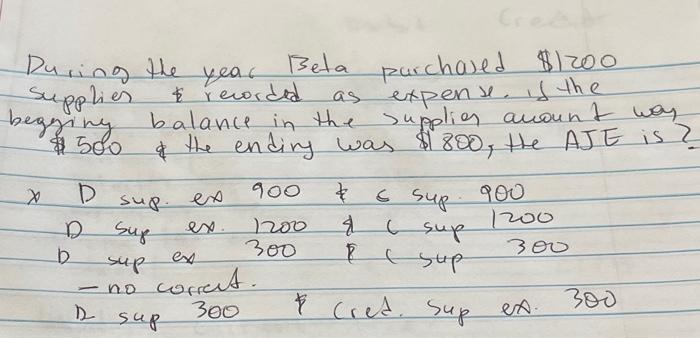 During the year Beta purchased $1200
supplies & recorded as expense. if the
beggining balance in the supplies account way
$500 & the ending was $1800, the AJE is ?
x D sup. ex 900 & c sup. 900
D sup ex. 1200 & c sup 1200
D sup ex 300 & c sup 300
- no correct.
D sup 300 & Cred. Sup ex. 300